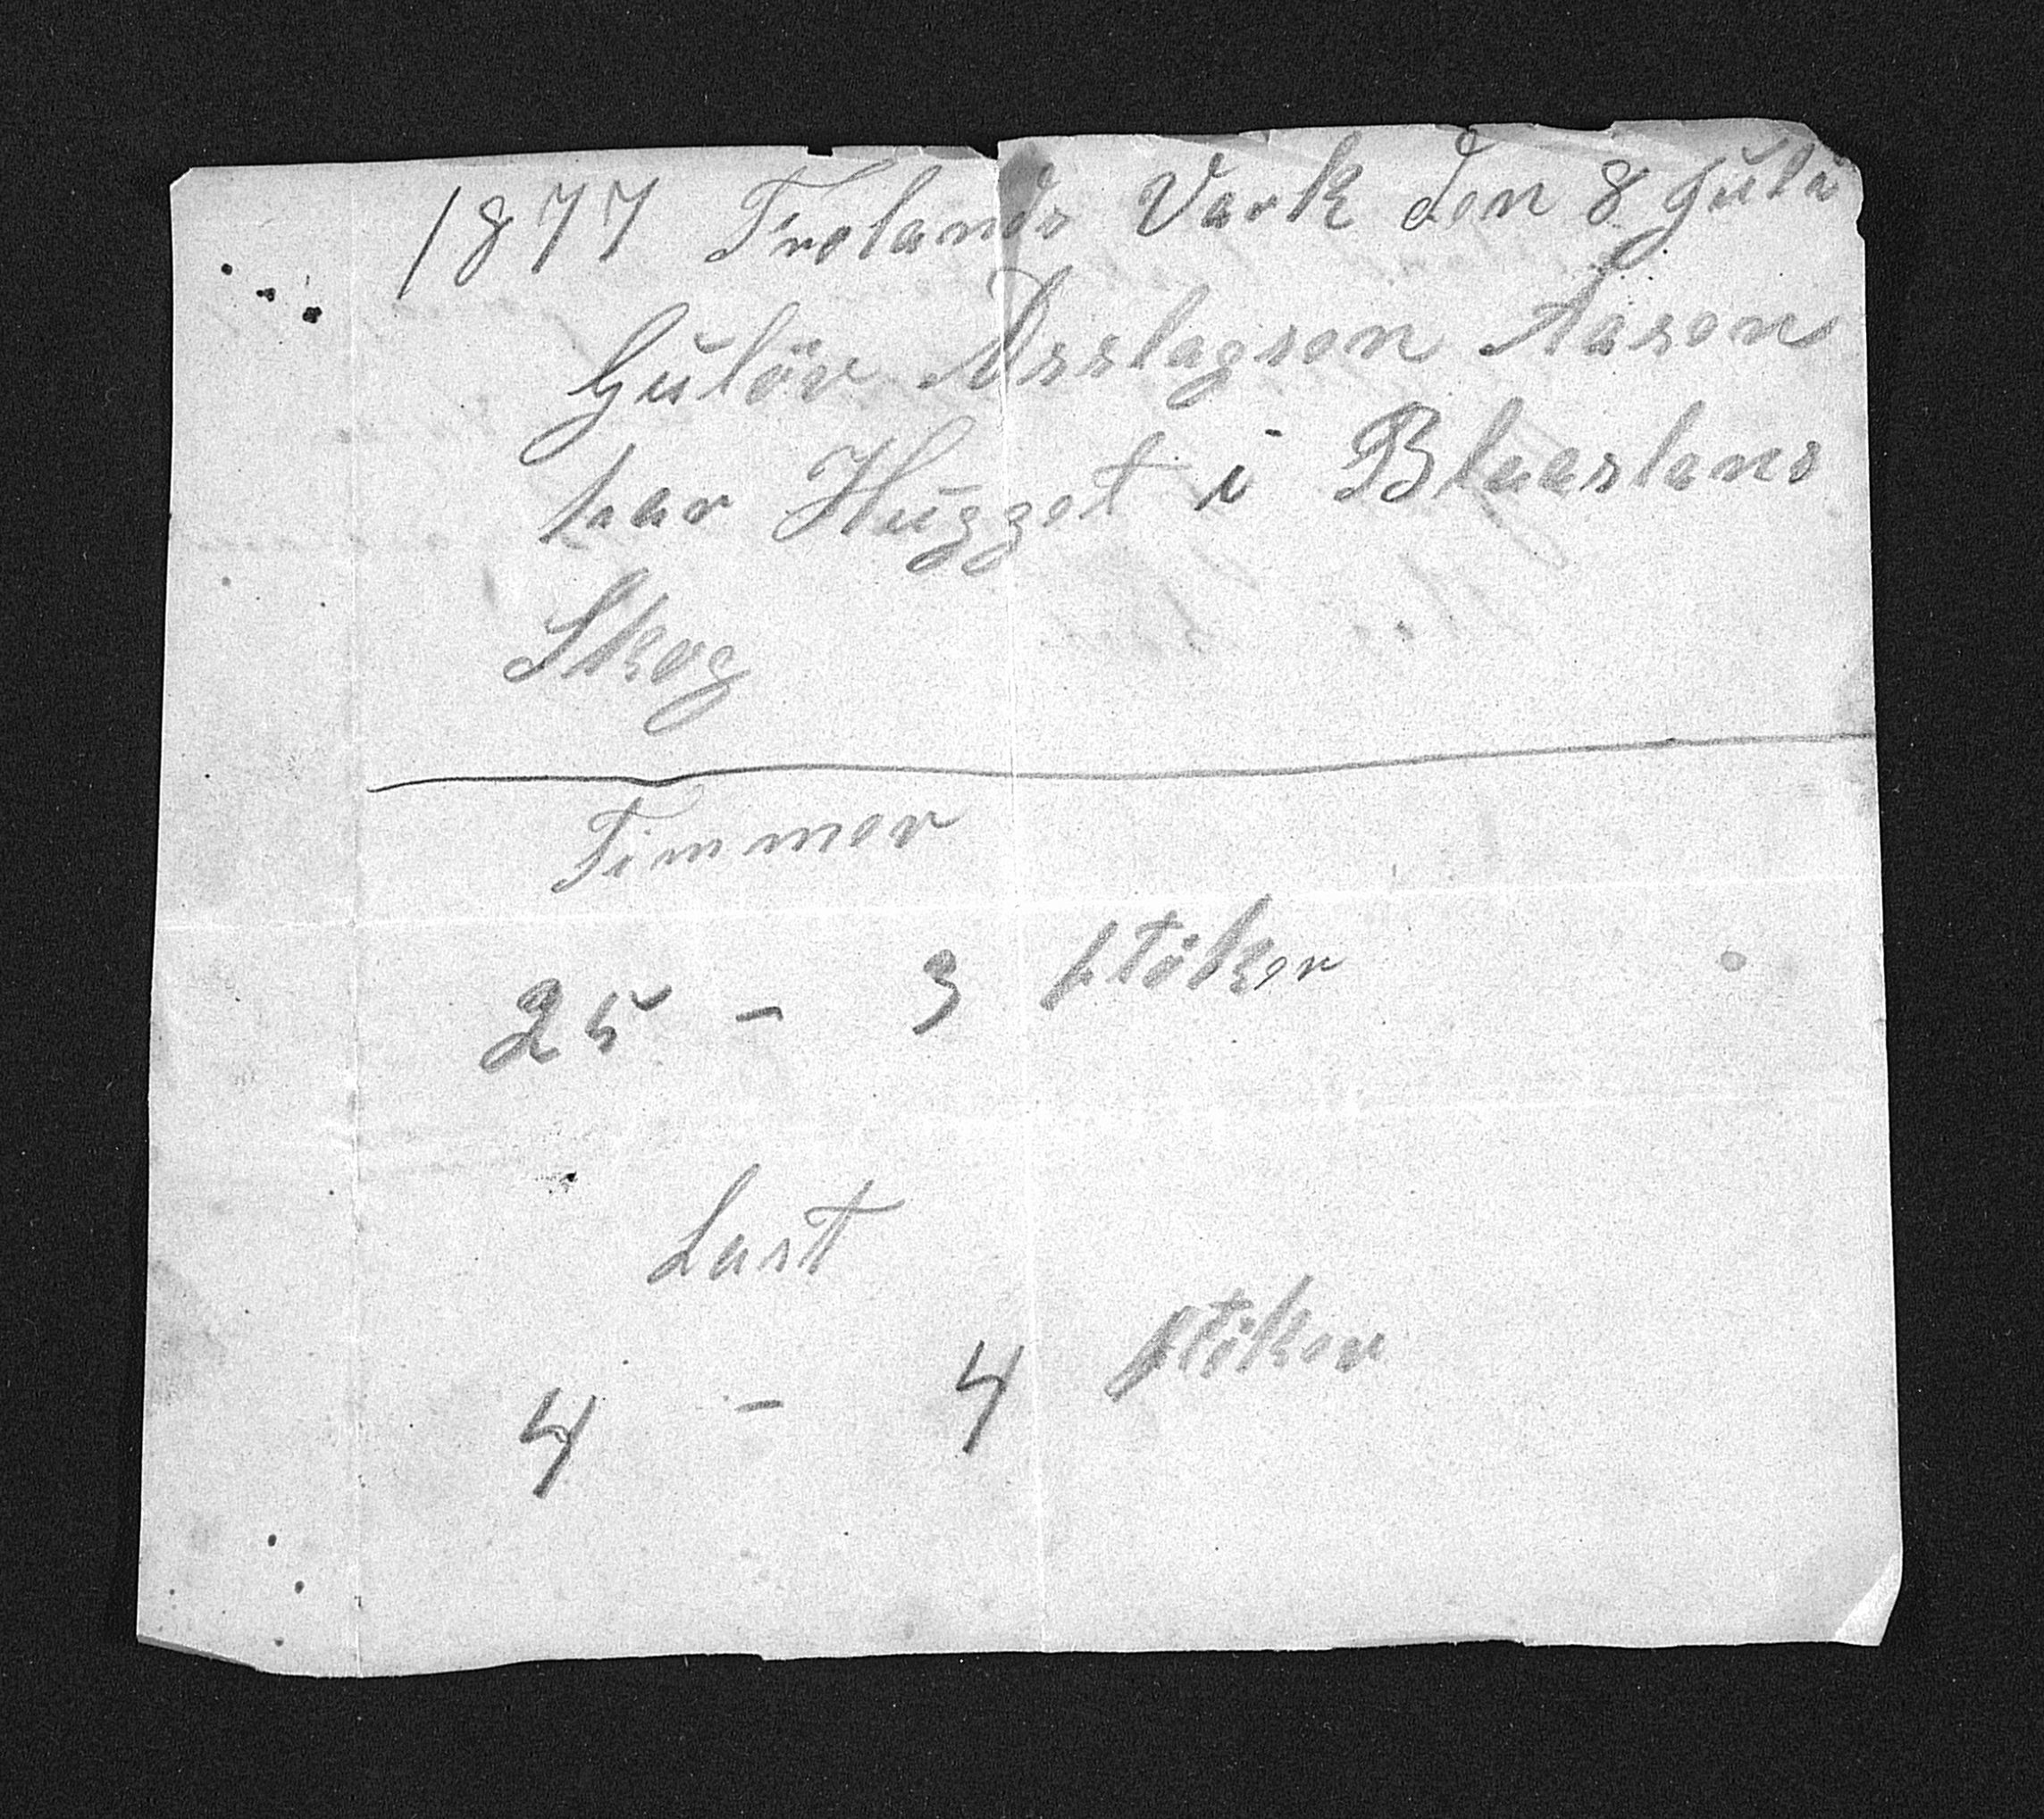 1877 Frolands Vark den 8 Juli
Gulöv Asslagsen Aasen
har Hugget i Blaaslans
Skog
Timmer
25 - 3 stöker
Last
4 - 4 stöker